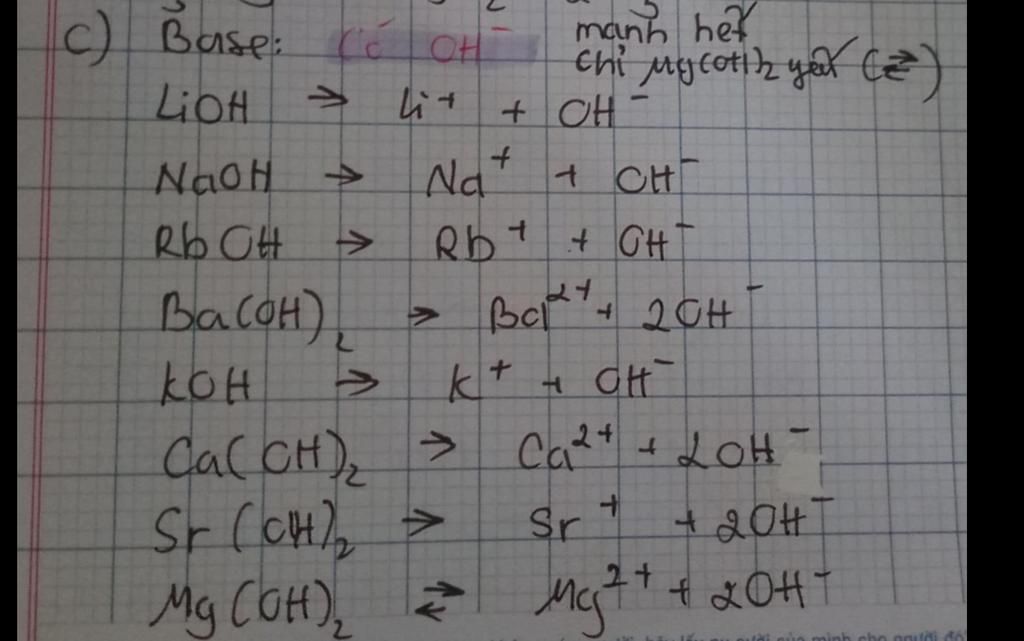 c) Base: Có OH⁻ mạnh hết
chỉ Mg(OH)₂ yếu (⇄)
LiOH → Li⁺ + OH⁻
NaOH → Na⁺ + OH⁻
RbOH → Rb⁺ + OH⁻
Ba(OH)₂ → Ba²⁺ + 2OH⁻
KOH → K⁺ + OH⁻
Ca(OH)₂ → Ca²⁺ + 2OH⁻
Sr(OH)₂ → Sr⁺ + 2OH⁻
Mg(OH)₂ ⇄ Mg²⁺ + 2OH⁻